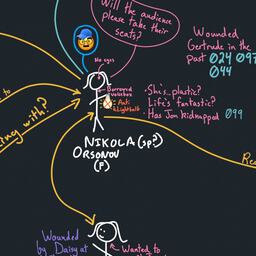 Will the audience
please take their
seats?
Wounded
Gertrude in the
past 024 097
044
No eyes
Burrowed
voicebox
= Anti
Lightbulb
• She's plastic?
Life's fantastic?
• Has Jon kidnapped 099
to
ing with?
NIKOLA (sp?)
ORSONOV
(F)
Re
Wounded
by Daisy at
Wanted to